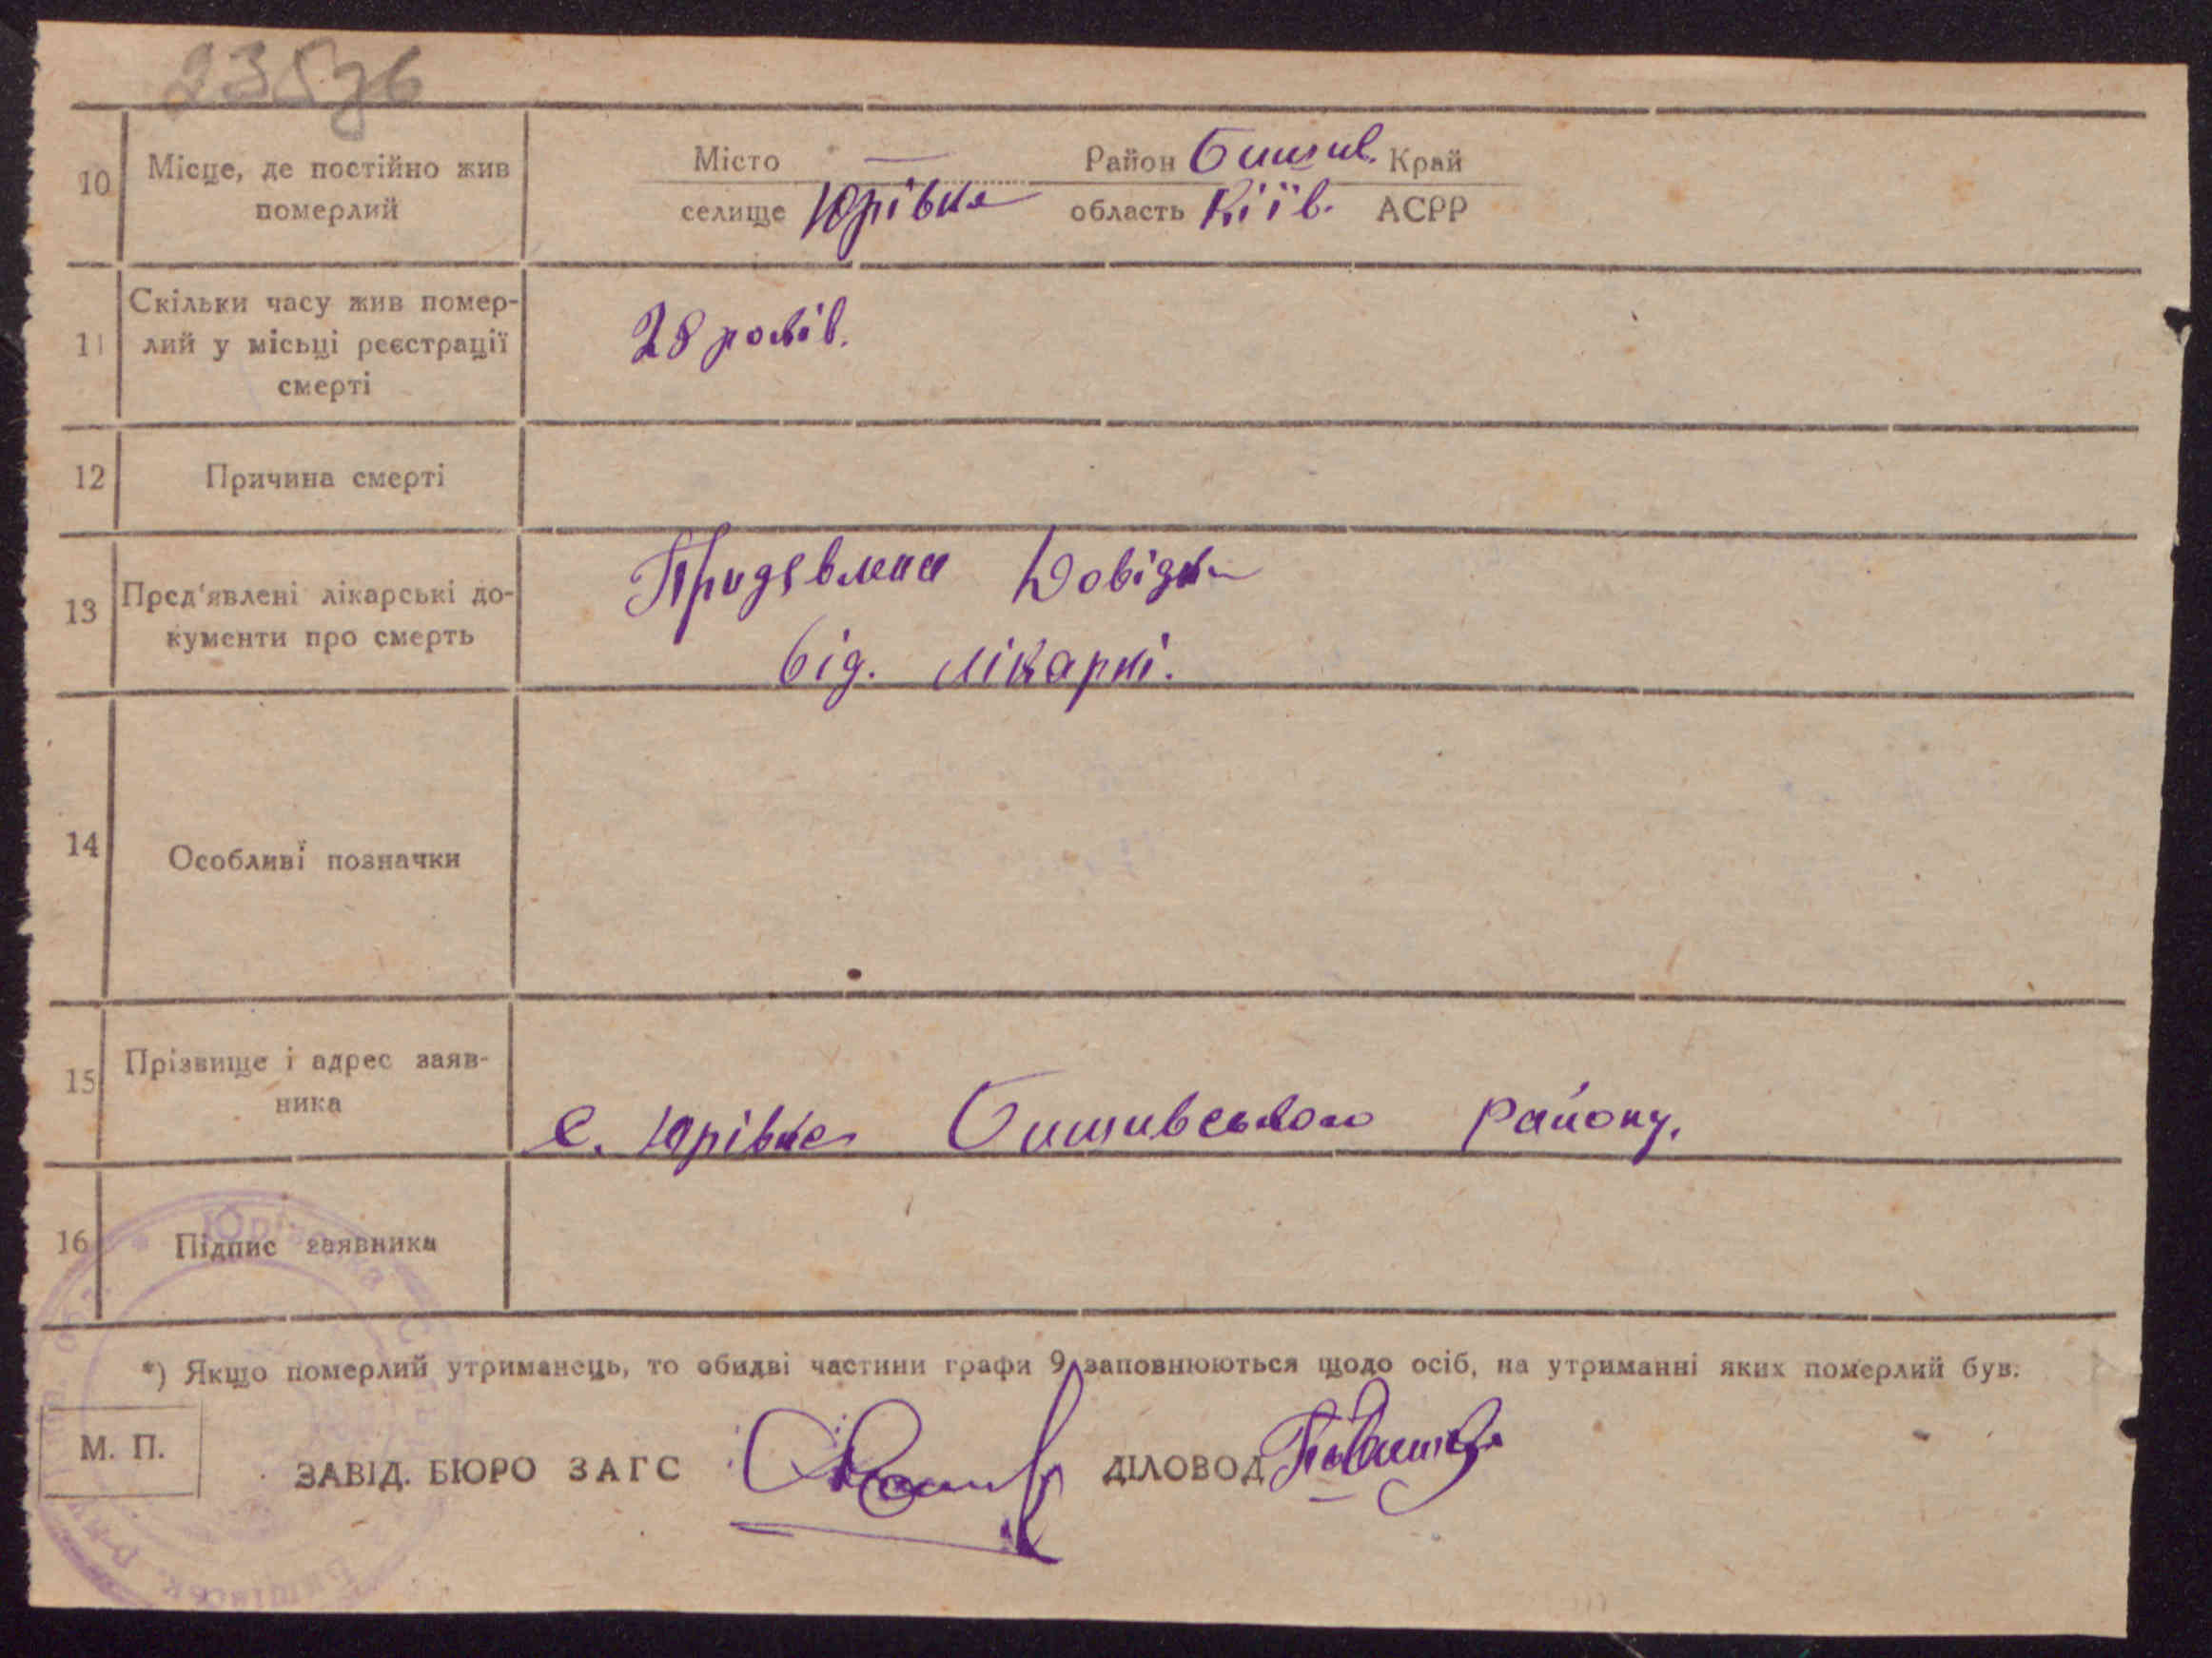 235зв
10 Місце, де постійно жив померлий
Місто — Район Бишив. Край
селище Юрівка область Київ. АСРР
11 Скільки часу жив помер-
лий у місьці реєстрації
смерті
28 років.
12 Причина смерті
13 Пред'явлені лікарські до-
кументи про смерть
Придявлена Довідка
від. лікарні.
14 Особливі позначки
15 Прізвище і адрес заяв-
ника
с. Юрівка Бишивського району.
16 Підпис заявника
*) Якщо померлий утриманець, то обидві частини графи 9 заповнюються щодо осіб, на утриманні яких померлий був.
М. П.
ЗАВІД. БЮРО ЗАГС
ДІЛОВОД